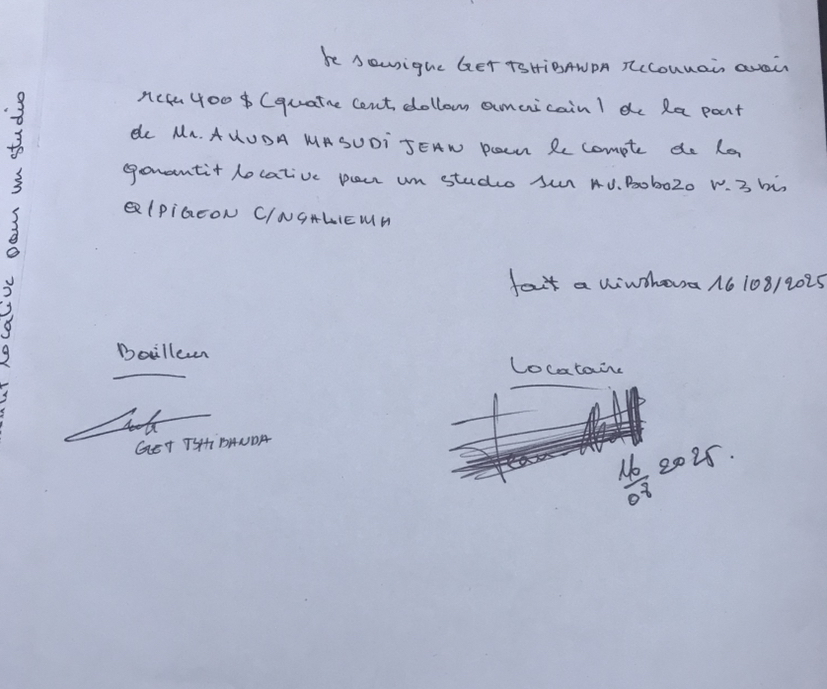 Je sousigne GET TSHIBANDA reconnais avoir
reçu 400 $ (quatre cent dollars americain) de la part
de Mr. AMUDA MASUDI JEAN pour le compte de la
garantit locative pour un studio sur AV. Bobozo N. 3 bis
Q/PIGEON C/NGALIEMA
fait a Kinshasa 16/08/2025
Bailleur
Locataire
GET TSHIBANDA
Jean
16
08 2025.
locative pour un studio